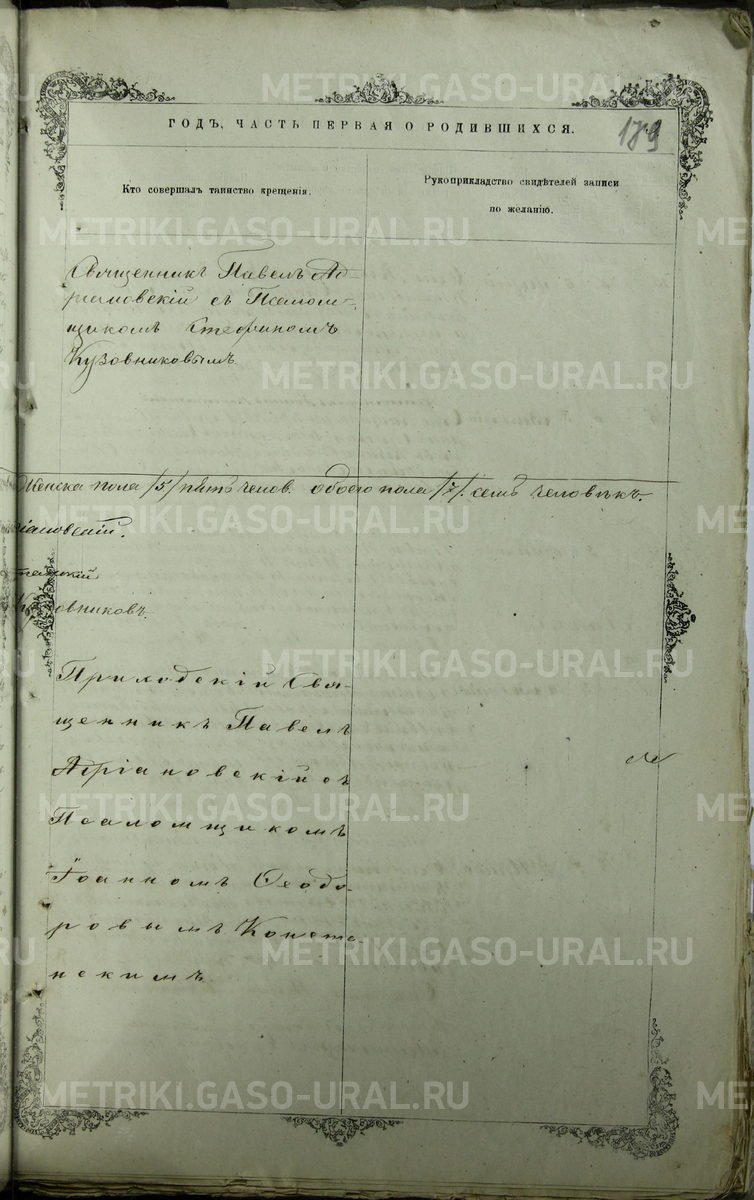 ГОДЪ, ЧАСТЬ ПЕРВАЯ О РОДИВШИХСЯ.
179
Кто совершалъ таинство крещенія.
Рукоприкладство свидѣтелей записи
по желанію.
Священникъ Павелъ Ад-
ріановскій съ Псалом-
щикомъ Стефаномъ
Кузовниковымъ
Женска пола /5/ пять челов. обоего пола /7/. семь человѣкъ.
іановскій.
танскій
Кузовниковъ.
Приходскій Свя-
щенникъ Павелъ
Адріановскій съ
Псаломщикомъ
Іоанномъ Ѳеодо-
ровымъ Конста-
нскимъ
METRIKI.GASO-URAL.RU